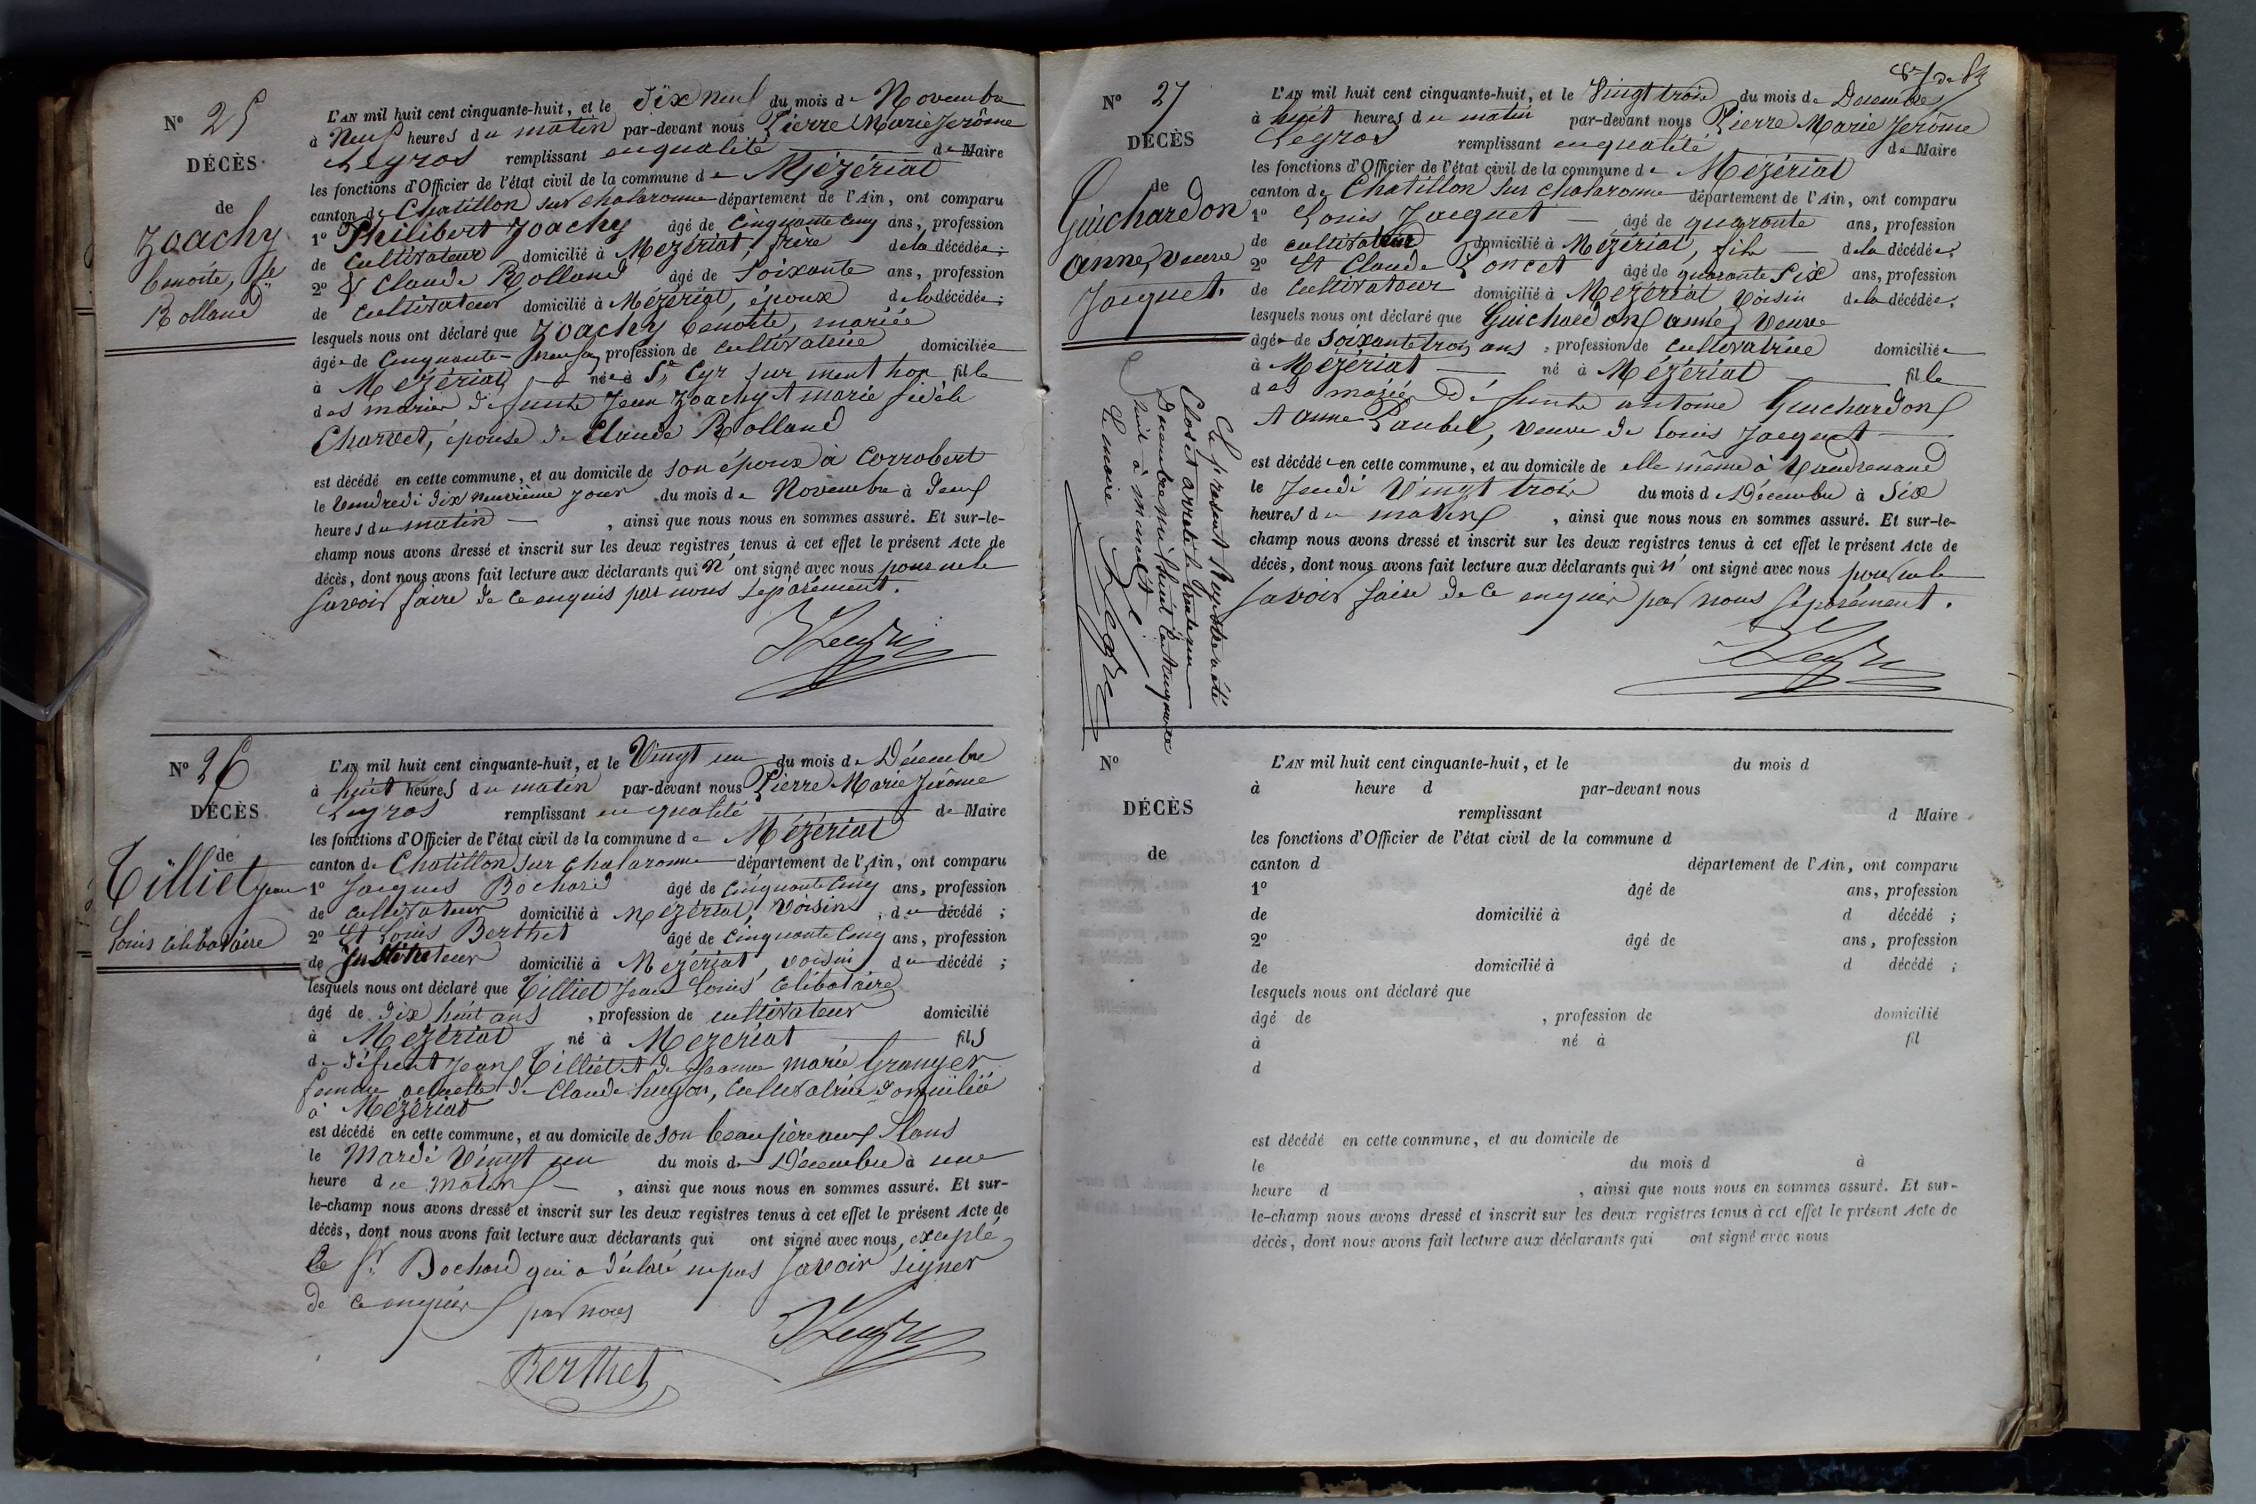 N° 25
DÉCÈS
de
Zoachy
benoite, fe
Rolland
L'AN mil huit cent cinquante-huit, et le dix neuf du mois de Novembre
à Neuf heures du matin par-devant nous Pierre Marie Jerôme
Legros remplissant en qualité de Maire
les fonctions d'Officier de l'état civil de la commune de Mézériat
canton de Chatillon sur chalaronne département de l'Ain, ont comparu
1° Philibert Zoachy âgé de Cinquante cinq ans, profession
de cultivateur domicilié à Mézériat, frère de la décédée;
2° & Claude Rolland âgé de Soixante ans, profession
de cultivateur domicilié à Mézériat, époux de la décédée;
lesquels nous ont déclaré que Zoachy benoite, mariée
âgée de Cinquante-neuf profession de cultivatrice domiciliée
à Mézériat née à St Cyr sur menthon fille
des mariés défunts Jean Zoachy et marie fidèle
Charvet, épouse de Claude Rolland
est décédé en cette commune, et au domicile de son époux à Corrobert
le Vendredi dix neuvième jour du mois de Novembre à deux
heures du matin, ainsi que nous nous en sommes assuré. Et sur-le-
champ nous avons dressé et inscrit sur les deux registres tenus à cet effet le présent Acte de
décès, dont nous avons fait lecture aux déclarants qui n'ont signé avec nous pour ne le
savoir faire de ce enquis par nous séparément.
N° 26
DÉCÈS
de
Tilliet jean
Louis célibataire
L'AN mil huit cent cinquante-huit, et le Vingt un du mois de Décembre
à huit heures du matin par-devant nous Pierre Marie Jerôme
Legros remplissant en qualité de Maire
les fonctions d'Officier de l'état civil de la commune de Mézériat
canton de Chatillon sur chalaronne département de l'Ain, ont comparu
1° Jacques Bochard âgé de Cinquante cinq ans, profession
de cultivateur domicilié à Mézériat, voisin, du décédé;
2° Et Louis Berthet âgé de Cinquante cinq ans, profession
de Instituteur domicilié à Mézériat, voisin du décédé;
lesquels nous ont déclaré que Tilliet Jean Louis Célibataire
âgé de dix huit ans, profession de cultivateur domicilié
à Mézériat né à Mézériat fils
de défunt Jean Tilliet et de Jeanne marie Granger
femme actuelle de Claude hugon, Cultivatrice domiciliée
à Mézériat
est décédé en cette commune, et au domicile de son beau père
le Mardi Vingt un du mois de Décembre à une
heure du matin, ainsi que nous nous en sommes assuré. Et sur-
le-champ nous avons dressé et inscrit sur les deux registres tenus à cet effet le présent Acte de
décès, dont nous avons fait lecture aux déclarants qui ont signé avec nous, excepté
le Sr Bochard qui a déclaré ne pas savoir signer
de ce enquis par nous
Berthet
87 de
N° 27
DÉCÈS
de
Guichardon
anne, veuve
Jacquet.
L'AN mil huit cent cinquante-huit, et le Vingt trois du mois de Décembre
à huit heures du matin par-devant nous Pierre Marie Jerôme
Legros remplissant en qualité de Maire
les fonctions d'Officier de l'état civil de la commune de Mézériat
canton de Chatillon sur chalaronne département de l'Ain, ont comparu
1° Louis Jacquet âgé de quarante ans, profession
de cultivateur domicilié à Mézériat, fils de la décédée;
2° Et Claude Poncet âgé de quarante six ans, profession
de Cultivateur domicilié à Mézériat, voisin de la décédée;
lesquels nous ont déclaré que Guichardon anne, veuve
âgée de Soixante trois ans, profession de cultivatrice domiciliée
à Mézériat né à Mézériat fille
des mariés Défunts antoine Guichardon
et anne Paubel, veuve de Louis Jacquet
est décédée en cette commune, et au domicile de elle même à
le Jeudi Vingt trois du mois de Décembre à Six
heures du matin, ainsi que nous nous en sommes assuré. Et sur-le-
champ nous avons dressé et inscrit sur les deux registres tenus à cet effet le présent Acte de
décès, dont nous avons fait lecture aux déclarants qui n'ont signé avec nous pour ne le
savoir faire de ce enquis par nous séparément.
Le présent Registre a été
Clos et arrêté le Trente un
Décembre mil huit cent cinquante
huit à minuit
Le maire Legros
N°
DÉCÈS
de
L'AN mil huit cent cinquante-huit, et le du mois d
à heure d par-devant nous
remplissant d Maire
les fonctions d'Officier de l'état civil de la commune d
canton d département de l'Ain, ont comparu
1° âgé de ans, profession
de domicilié à d décédé;
2° âgé de ans, profession
de domicilié à d décédé;
lesquels nous ont déclaré que
âgé de, profession de domicilié
à né à fil
d
est décédé en cette commune, et au domicile de
le du mois d à
heure d, ainsi que nous nous en sommes assuré. Et sur-
le-champ nous avons dressé et inscrit sur les deux registres tenus à cet effet le présent Acte de
décès, dont nous avons fait lecture aux déclarants qui ont signé avec nous